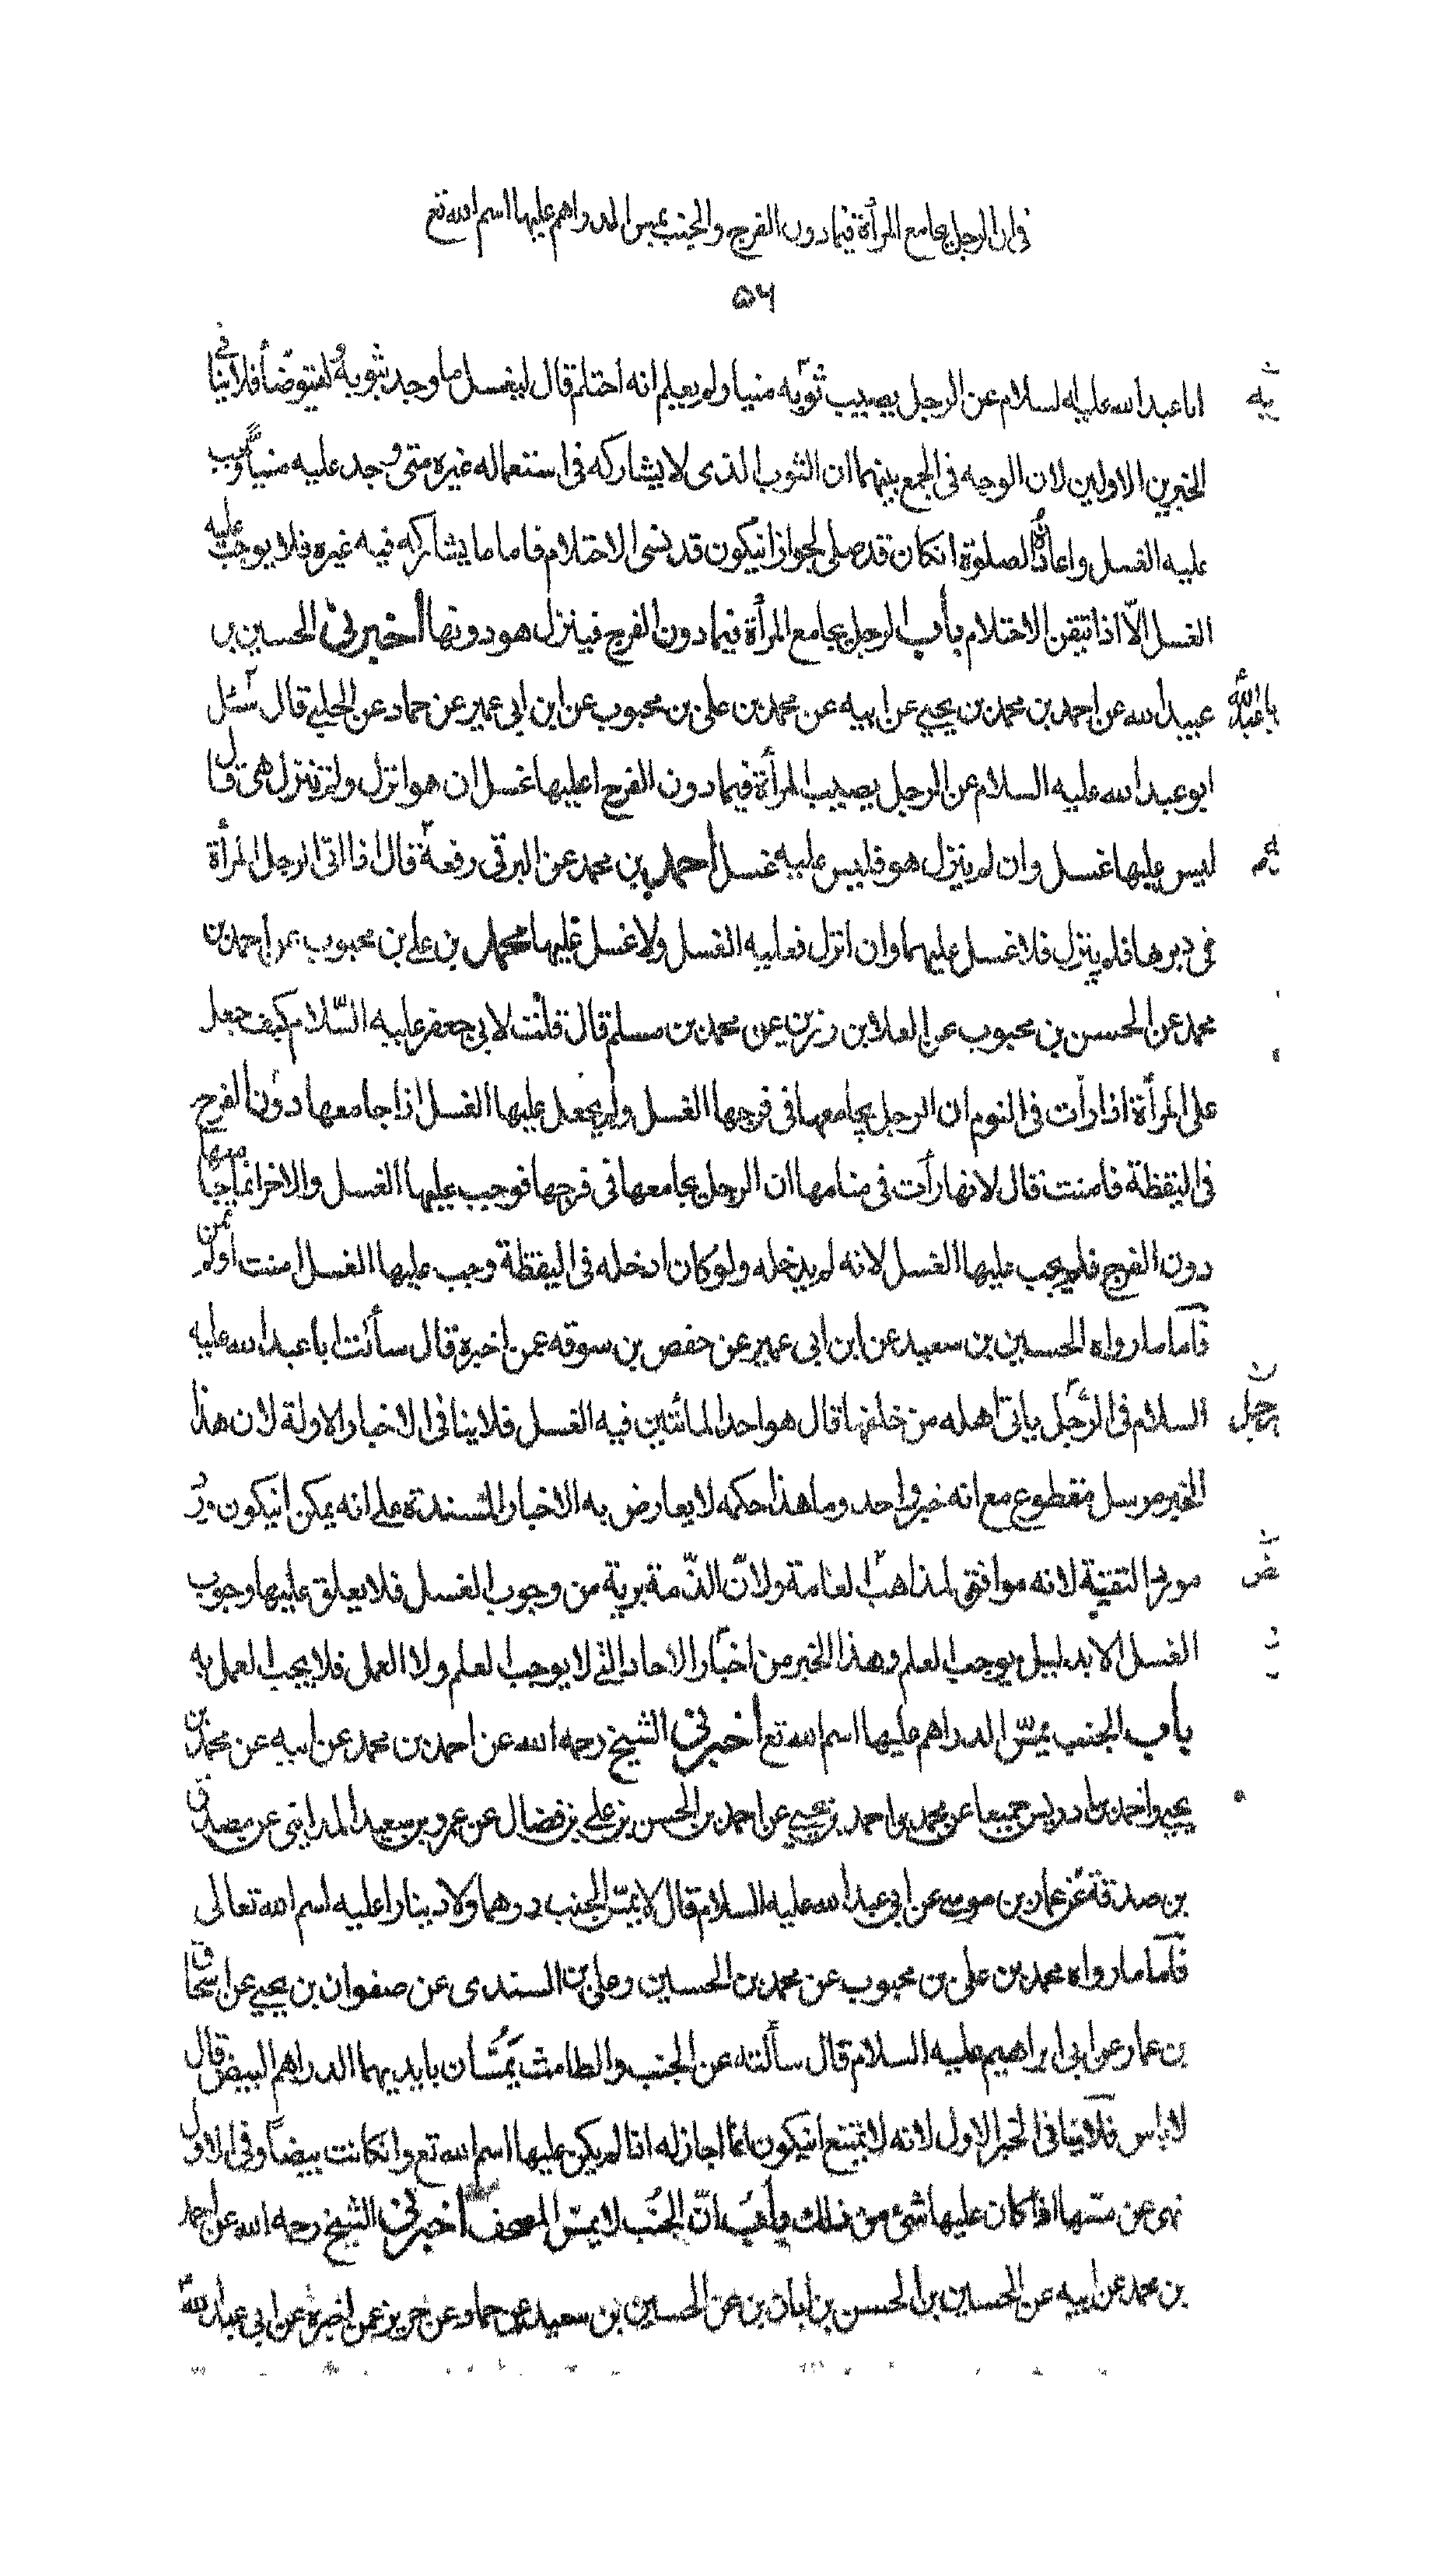 فى ان الرجل يجامع المرأة فيما دون الفرج والجنب يمس الدراهم عليها اسم الله تع
۵۶
ابا عبد الله عليه السلام عن الرجل يصيب ثوبه منيا ولم يعلم انه احتلم قال ليغسل ما وجد بثوبه وليتوضأ فلا ينافى
الخبرين الاولين لان الوجه فى الجمع بينهما ان الثوب الذى لا يشاركه فى استعماله غيره متى وجد عليه منيا وجب
عليه الغسل واعادة الصلوة انكان قد صلى لجواز انيكون قد نسى الاحتلام فاما ما يشاركه فيه غيره فلا يوجب عليه
الغسل الّا اذا تيقن الاحتلام باب الرجل يجامع المرأة فيما دون الفرج فينزل هو دونها أخبرنى الحسين بن
عبيد الله عن احمد بن محمد بن يحيى عن ابيه عن محمد بن على بن محبوب عن ابن ابى عمير عن حماد عن الحلبى قال سئل
ابو عبد الله عليه السلام عن الرجل يصيب المرأة فيما دون الفرج اعليها غسل ان هو انزل ولم تنزل هى قال
ليس عليها غسل وان لم ينزل هو فليس عليه غسل أحمد بن محمد عن البرقى رفعه قال اذا اتى الرجل المرأة
فى دبرها فلم ينزل فلا غسل عليهما وان انزل فعليه الغسل ولا غسل عليها محمد بن على بن محبوب عن احمد بن
محمد عن الحسن بن محبوب عن العلا بن رزين عن محمد بن مسلم قال قلت لابى جعفر عليه السّلام كيف جعل
على المرأة اذا رأت فى النوم ان الرجل يجامعها فى فرجها الغسل ولم يجعل عليها الغسل اذا جامعها دون الفرج
فى اليقظة فامنت قال لانها رأت فى منامها ان الرجل يجامعها فى فرجها فوجب عليها الغسل والاخر انما جامعها
دون الفرج فلم يجب عليها الغسل لانه لم يدخله ولو كان ادخله فى اليقظة وجب عليها الغسل امنت او لم تمن
فأما ما رواه الحسين بن سعيد عن ابن ابى عمير عن حفص بن سوقه عمن اخبره قال سألت ابا عبد الله عليه
السلام فى الرّجل ياتى اهله من خلفها قال هو احد الماتيين فيه الغسل فلا ينافى الاخبار الاولة لان هذا
الخبر مرسل مقطوع مع انه خبر واحد وما هذا حكمه لا يعارض به الاخبار المسندة على انه يمكن انيكون ورد
مورد التقيّة لانه موافق لمذاهب العامة ولانّ الذّمة برية من وجوب الغسل فلا يعلق عليها وجوب
الغسل الا بدليل يوجب العلم وهذا الخبر من اخبار الاحاد التى لا يوجب العلم ولا العمل فلا يجب العمل به
باب الجنب يمسّ الدراهم عليها اسم الله تع أخبرنى الشيخ رحمه الله عن احمد بن محمد عن ابيه عن محمد بن
يحيى واحمد بن ادريس جميعا عن محمد بن احمد بن يحيى عن احمد بن الحسن بن على بن فضال عن عمرو بن سعيد المداينى عن مصدق
بن صدقة عن عمار بن موسى عن ابى عبد الله عليه السلام قال لا يمسّ الجنب درهما ولا دينارا عليه اسم الله تعالى
فأما ما رواه محمد بن على بن محبوب عن محمد بن الحسين وعلى بن السندى عن صفوان بن يحيى عن اسحاق
بن عمار عن ابى ابراهيم عليه السلام قال سألته عن الجنب والطامث يمسّان بايديهما الدراهم البيض قال
لا باس فلا ينافى الخبر الاول لانه لا يمتنع انيكون انما اجاز له اذا لم يكن عليها اسم الله تع وانكانت بيضا وفى الاول
نهى عن مسّها اذا كان عليها شئ من ذلك باب انّ الجُنُب لا يمسّ المصحف أخبرنى الشيخ رحمه الله عن احمد
بن محمد عن ابيه عن الحسين بن الحسن بن ابان بن عن الحسين بن سعيد عن حماد عن حريز عمن اخبره عن ابى عبد الله